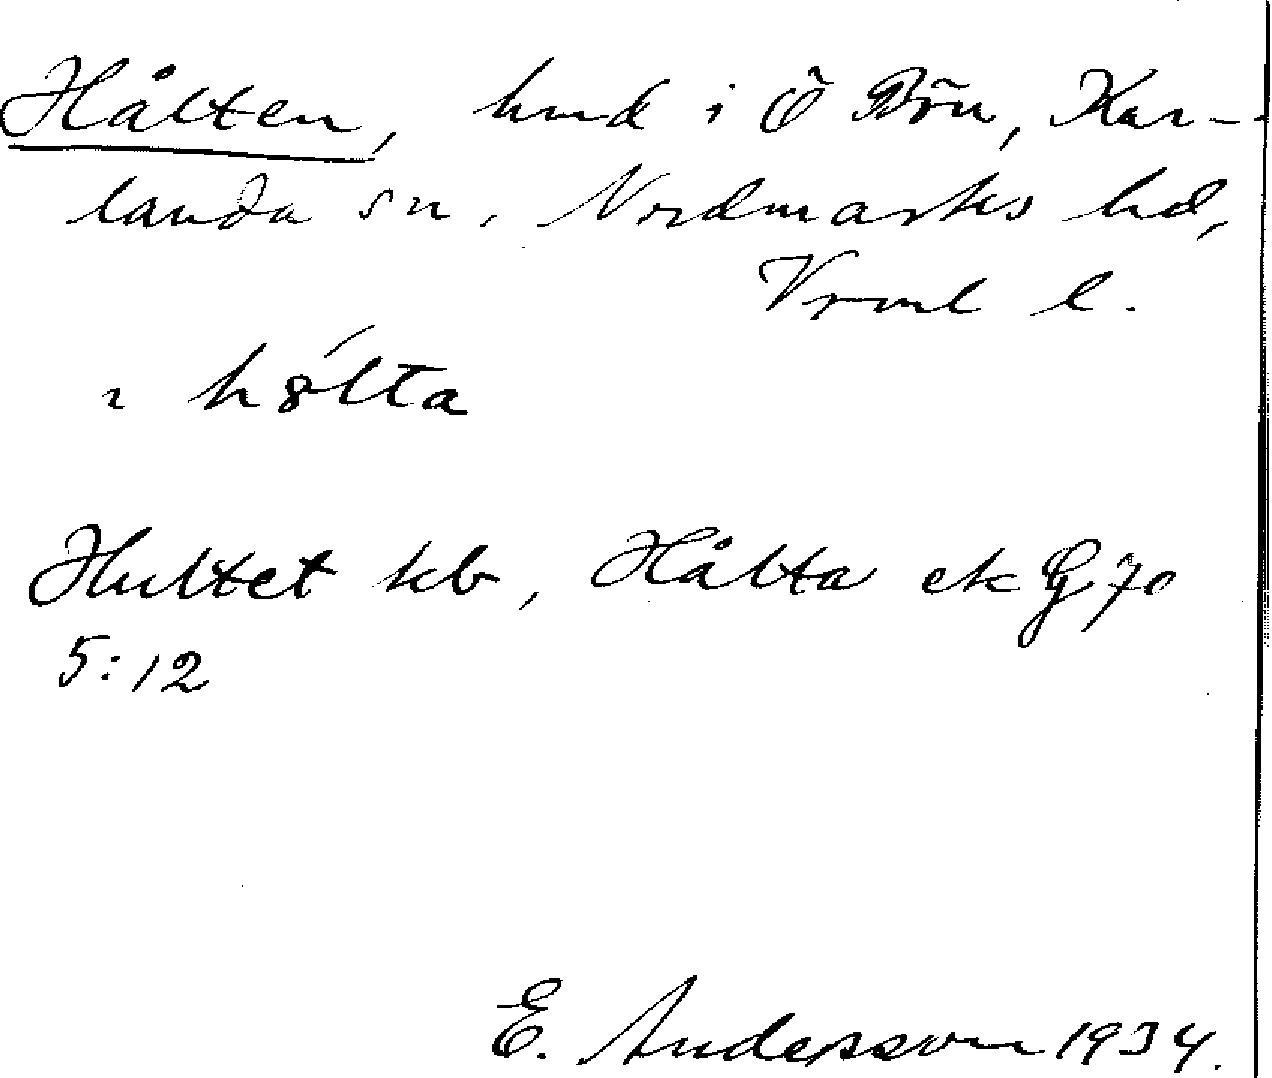 Hålten, hmd i Ö Bön, Kar-
landa sn, Nordmarks hd,
Vrml l.
hǻlta
Hultet kb, Hålta ek G 70
5:12
E. Andersson 1934.